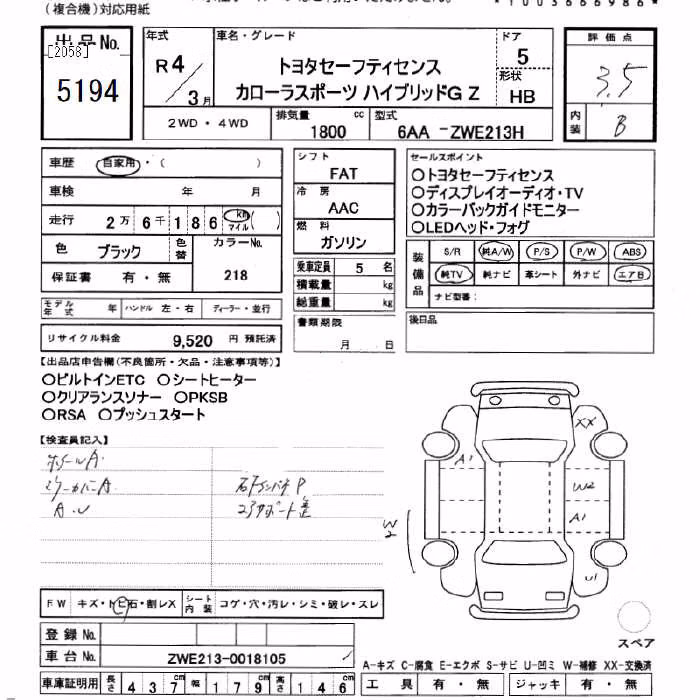 (複合機)対応用紙
*1003666986*
出品No.
[2058]
5194
年式
R4/3月
車名・グレード
トヨタセーフティセンス
カローラスポーツ ハイブリッドG Z
ドア
5
形状
HB
評価点
3.5
内装
B
2WD・4WD
排気量 1800 cc
型式 6AA -ZWE213H
車歴 自家用・( )
車検 年 月
走行 2万6千186 km マイル ( )
色 ブラック 色替
カラーNo. 218
保証書 有・無
モデル年式 年 ハンドル 左・右 ディーラー・並行
リサイクル料金 9,520 円 預託済
シフト
FAT
冷房
AAC
燃料
ガソリン
乗車定員 5 名
積載量 kg
総重量 kg
書類期限
月 日
セールスポイント
○トヨタセーフティセンス
○ディスプレイオーディオ・TV
○カラーバックガイドモニター
○LEDヘッド・フォグ
装備品
S/R 純A/W P/S P/W ABS
純TV 純ナビ 革シート 外ナビ エアB
ナビ型番:
後日品
【出品店申告欄(不良箇所・欠品・注意事項等)】
○ビルトインETC ○シートヒーター
○クリアランスソナー ○PKSB
○RSA ○プッシュスタート
【検査員記入】
ホイールA
A・U
XX
A1
W2
A1
W2
U1
FW キズ・トビ石・割レX
シート内装 コゲ・穴・汚レ・シミ・破レ・スレ
登録No.
車台No. ZWE213-0018105
車庫証明用 長さ 437cm 幅 179cm 高さ 146cm
スペア
A-キズ C-腐食 E-エクボ S-サビ U-凹ミ W-補修 XX-交換済
工具 有・無 ジャッキ 有・無